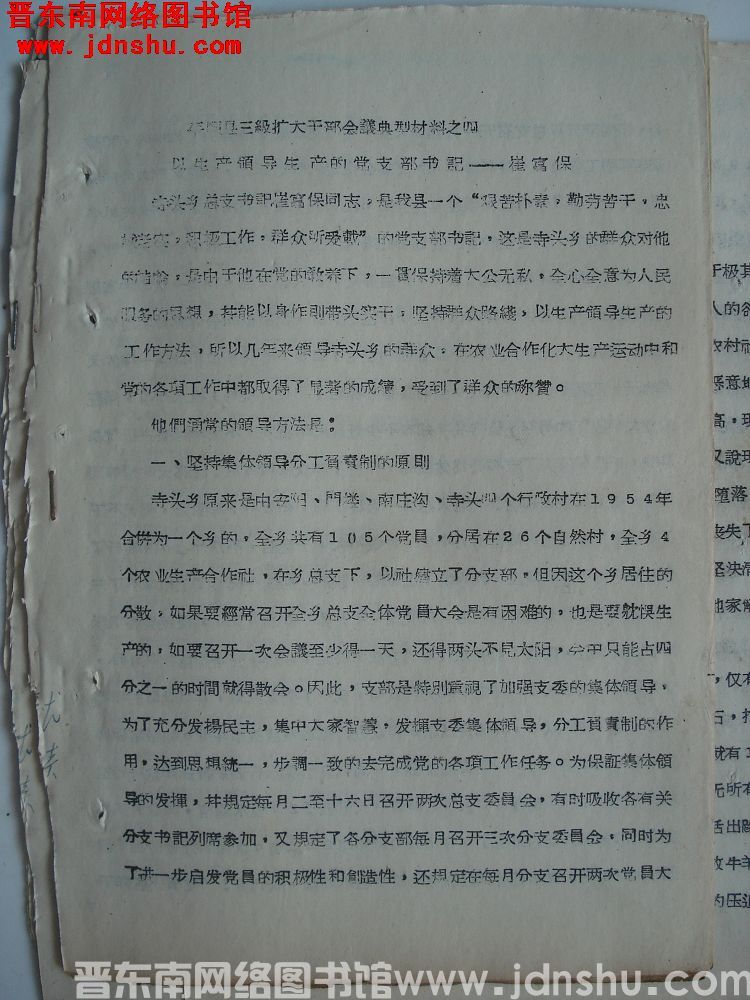 晋东南网络图书馆
www.jdnshu.com
县三級扩大干部会議典型材料之四
以生产領导生产的党支部书記——崔富保
寺头乡总支书記崔富保同志，是我县一个“艰苦朴素，勤劳苦干，忠
积极工作，群众所爱戴”的党支部书記，这是寺头乡的群众对他
的評論，是由于他在党的教养下，一貫保持着大公无私，全心全意为人民
服务的思想，幷能以身作則带头实干，坚持群众路綫，以生产領导生产的
工作方法，所以几年来領导寺头乡的群众，在农业合作化大生产运动中和
党的各項工作中都取得了显著的成績，受到了群众的称贊。
他們通常的領导方法是：
一、坚持集体領导分工負責制的原則
寺头乡原来是由安阳、門楼、南庄沟、寺头四个行政村在1954年
合併为一个乡的，全乡共有105个党員，分居在26个自然村，全乡4
个农业生产合作社，在乡总支下，以社建立了分支部。但因这个乡居住的
分散，如果要經常召开全乡总支全体党員大会是有困难的，也是要躭悞生
产的，如要召开一次会議至少得一天，还得两头不見太阳，会中只能占四
分之一的时間就得散会。因此，支部是特别重視了加强支委的集体領导，
为了充分发揚民主，集中大家智慧，发揮支委集体領导，分工負責制的作
用，达到思想統一，步調一致的去完成党的各項工作任务。为保証集体領
导的发揮，幷規定每月二至十六日召开两次总支委員会，有时吸收各有关
分支书記列席参加，又規定了各分支部每月召开三次分支委員会，同时为
了进一步启发党員的积极性和創造性，还規定在每月分支召开两次党員大
于极其
人的各
农村社
恶意地
高，現
又說現
堕落
丧失了
坚决常
他家解
，仅有
石，打
就有工
无所有
活出路
放牛羊
的压迫
晋东南网络图书馆www.jdnshu.com